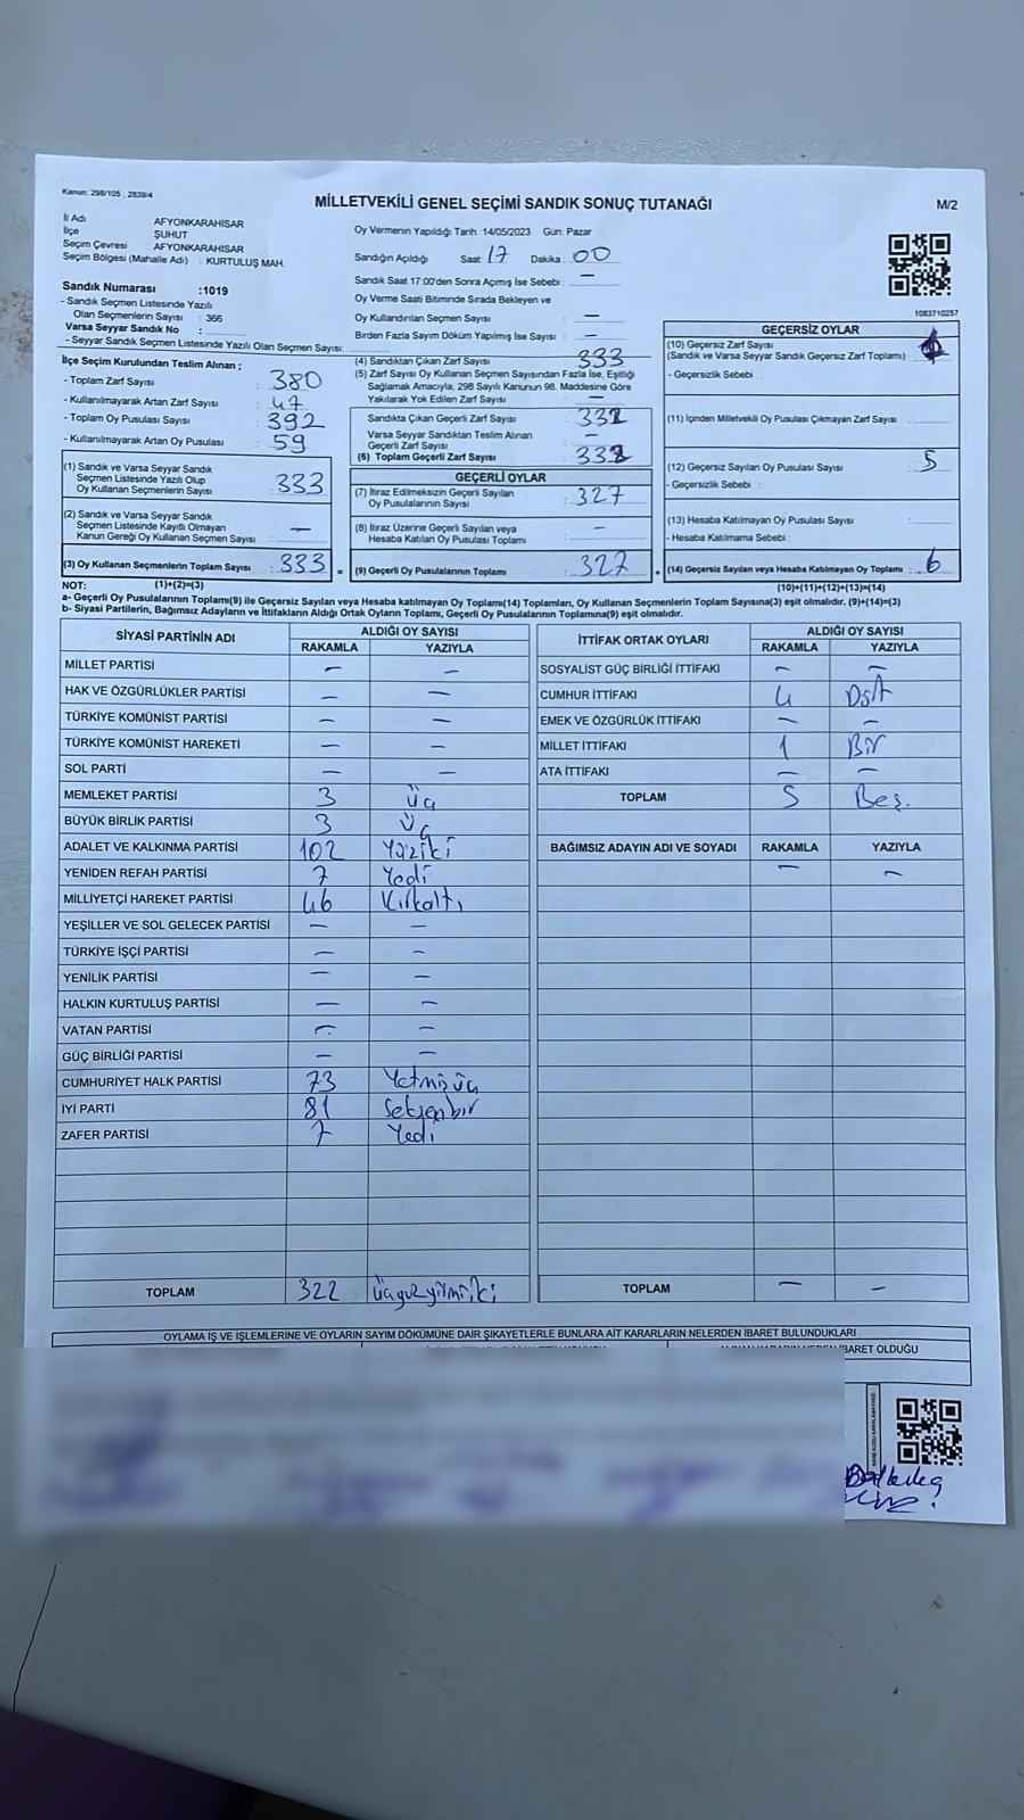 Kanun: 298/105 , 2839/4
MİLLETVEKİLİ GENEL SEÇİMİ SANDIK SONUÇ TUTANAĞI
M/2
İl Adı AFYONKARAHİSAR
İlçe ŞUHUT
Seçim Çevresi AFYONKARAHİSAR
Seçim Bölgesi (Mahalle Adı) : KURTULUŞ MAH.
Sandık Numarası :1019
- Sandık Seçmen Listesinde Yazılı
Olan Seçmenlerin Sayısı : 366
Varsa Seyyar Sandık No :
- Seyyar Sandık Seçmen Listesinde Yazılı Olan Seçmen Sayısı:
Oy Vermenin Yapıldığı Tarih: 14/05/2023 Gün: Pazar
Sandığın Açıldığı Saat: 17 Dakika: 00
Sandık Saat 17:00'den Sonra Açımış İse Sebebi : —
Oy Verme Saati Bitiminde Sırada Bekleyen ve
Oy Kullandırılan Seçmen Sayısı —
Birden Fazla Sayım Döküm Yapılmış İse Sayısı —
1083710257
İlçe Seçim Kurulundan Teslim Alınan ;
- Toplam Zarf Sayısı : 380
- Kullanılmayarak Artan Zarf Sayısı : 47
- Toplam Oy Pusulası Sayısı : 392
- Kullanılmayarak Artan Oy Pusulası : 59
(1) Sandık ve Varsa Seyyar Sandık
Seçmen Listesinde Yazılı Olup
Oy Kullanan Seçmenlerin Sayısı : 333
(2) Sandık ve Varsa Seyyar Sandık
Seçmen Listesinde Kayıtlı Olmayan
Kanun Gereği Oy Kullanan Seçmen Sayısı : —
(3) Oy Kullanan Seçmenlerin Toplam Sayısı : 333 =
(4) Sandıktan Çıkan Zarf Sayısı 333
(5) Zarf Sayısı Oy Kullanan Seçmen Sayısından Fazla İse, Eşitliği
Sağlamak Amacıyla, 298 Sayılı Kanunun 98. Maddesine Göre
Yakılarak Yok Edilen Zarf Sayısı —
Sandıkta Çıkan Geçerli Zarf Sayısı
Varsa Seyyar Sandıktan Teslim Alınan
Geçerli Zarf Sayısı —
(6) Toplam Geçerli Zarf Sayısı
GEÇERLİ OYLAR
(7) İtiraz Edilmeksizin Geçerli Sayılan
Oy Pusulalarının Sayısı : 327
(8) İtiraz Üzerine Geçerli Sayılan veya
Hesaba Katılan Oy Pusulası Toplamı : —
(9) Geçerli Oy Pusulalarının Toplamı : 327
GEÇERSİZ OYLAR
(10) Geçersiz Zarf Sayısı
(Sandık ve Varsa Seyyar Sandık Geçersiz Zarf Toplamı) :
- Geçersizlik Sebebi :
(11) İçinden Milletvekili Oy Pusulası Çıkmayan Zarf Sayısı
(12) Geçersiz Sayılan Oy Pusulası Sayısı 5
- Geçersizlik Sebebi :
(13) Hesaba Katılmayan Oy Pusulası Sayısı
- Hesaba Katılmama Sebebi :
(14) Geçersiz Sayılan veya Hesaba Katılmayan Oy Toplamı : 6
NOT: (1)+(2)=(3) (10)+(11)+(12)+(13)=(14)
a- Geçerli Oy Pusulalarının Toplamı(9) ile Geçersiz Sayılan veya Hesaba katılmayan Oy Toplamı(14) Toplamları, Oy Kullanan Seçmenlerin Toplam Sayısına(3) eşit olmalıdır. (9)+(14)=(3)
b- Siyasi Partilerin, Bağımsız Adayların ve İttifakların Aldığı Ortak Oyların Toplamı, Geçerli Oy Pusulalarının Toplamına(9) eşit olmalıdır.
SİYASİ PARTİNİN ADI ALDIĞI OY SAYISI
RAKAMLA YAZIYLA
MİLLET PARTİSİ — —
HAK VE ÖZGÜRLÜKLER PARTİSİ — —
TÜRKİYE KOMÜNİST PARTİSİ — —
TÜRKİYE KOMÜNİST HAREKETİ — —
SOL PARTİ — —
MEMLEKET PARTİSİ 3 Üç
BÜYÜK BİRLİK PARTİSİ 3 Üç
ADALET VE KALKINMA PARTİSİ 102 Yüziki
YENİDEN REFAH PARTİSİ 7 Yedi
MİLLİYETÇİ HAREKET PARTİSİ 46 Kırkaltı
YEŞİLLER VE SOL GELECEK PARTİSİ — —
TÜRKİYE İŞÇİ PARTİSİ — —
YENİLİK PARTİSİ — —
HALKIN KURTULUŞ PARTİSİ — —
VATAN PARTİSİ — —
GÜÇ BİRLİĞİ PARTİSİ — —
CUMHURİYET HALK PARTİSİ 73 Yetmişüç
İYİ PARTİ 81 Seksenbir
ZAFER PARTİSİ 7 Yedi
TOPLAM 322 Üçyüzyirmiiki
İTTİFAK ORTAK OYLARI ALDIĞI OY SAYISI
RAKAMLA YAZIYLA
SOSYALİST GÜÇ BİRLİĞİ İTTİFAKI — —
CUMHUR İTTİFAKI 4 Dört
EMEK VE ÖZGÜRLÜK İTTİFAKI — —
MİLLET İTTİFAKI 1 Bir
ATA İTTİFAKI — —
TOPLAM 5 Beş.
BAĞIMSIZ ADAYIN ADI VE SOYADI RAKAMLA YAZIYLA
— —
TOPLAM — —
OYLAMA İŞ VE İŞLEMLERİNE VE OYLARIN SAYIM DÖKÜMÜNE DAİR ŞİKAYETLERLE BUNLARA AİT KARARLARIN NELERDEN İBARET BULUNDUKLARI
İBARET OLDUĞU